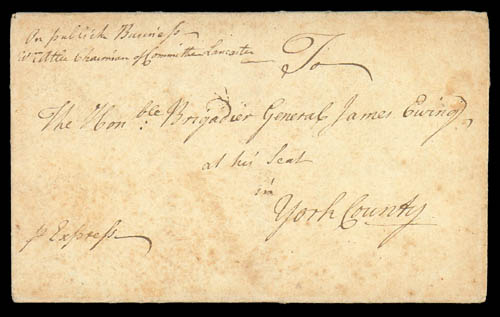 On publick Business
Wm Atlee Chairman of Committe Lancaster
To
The Honble: Brigadier General James Ewing,
at his Seat
in
York County
p Express